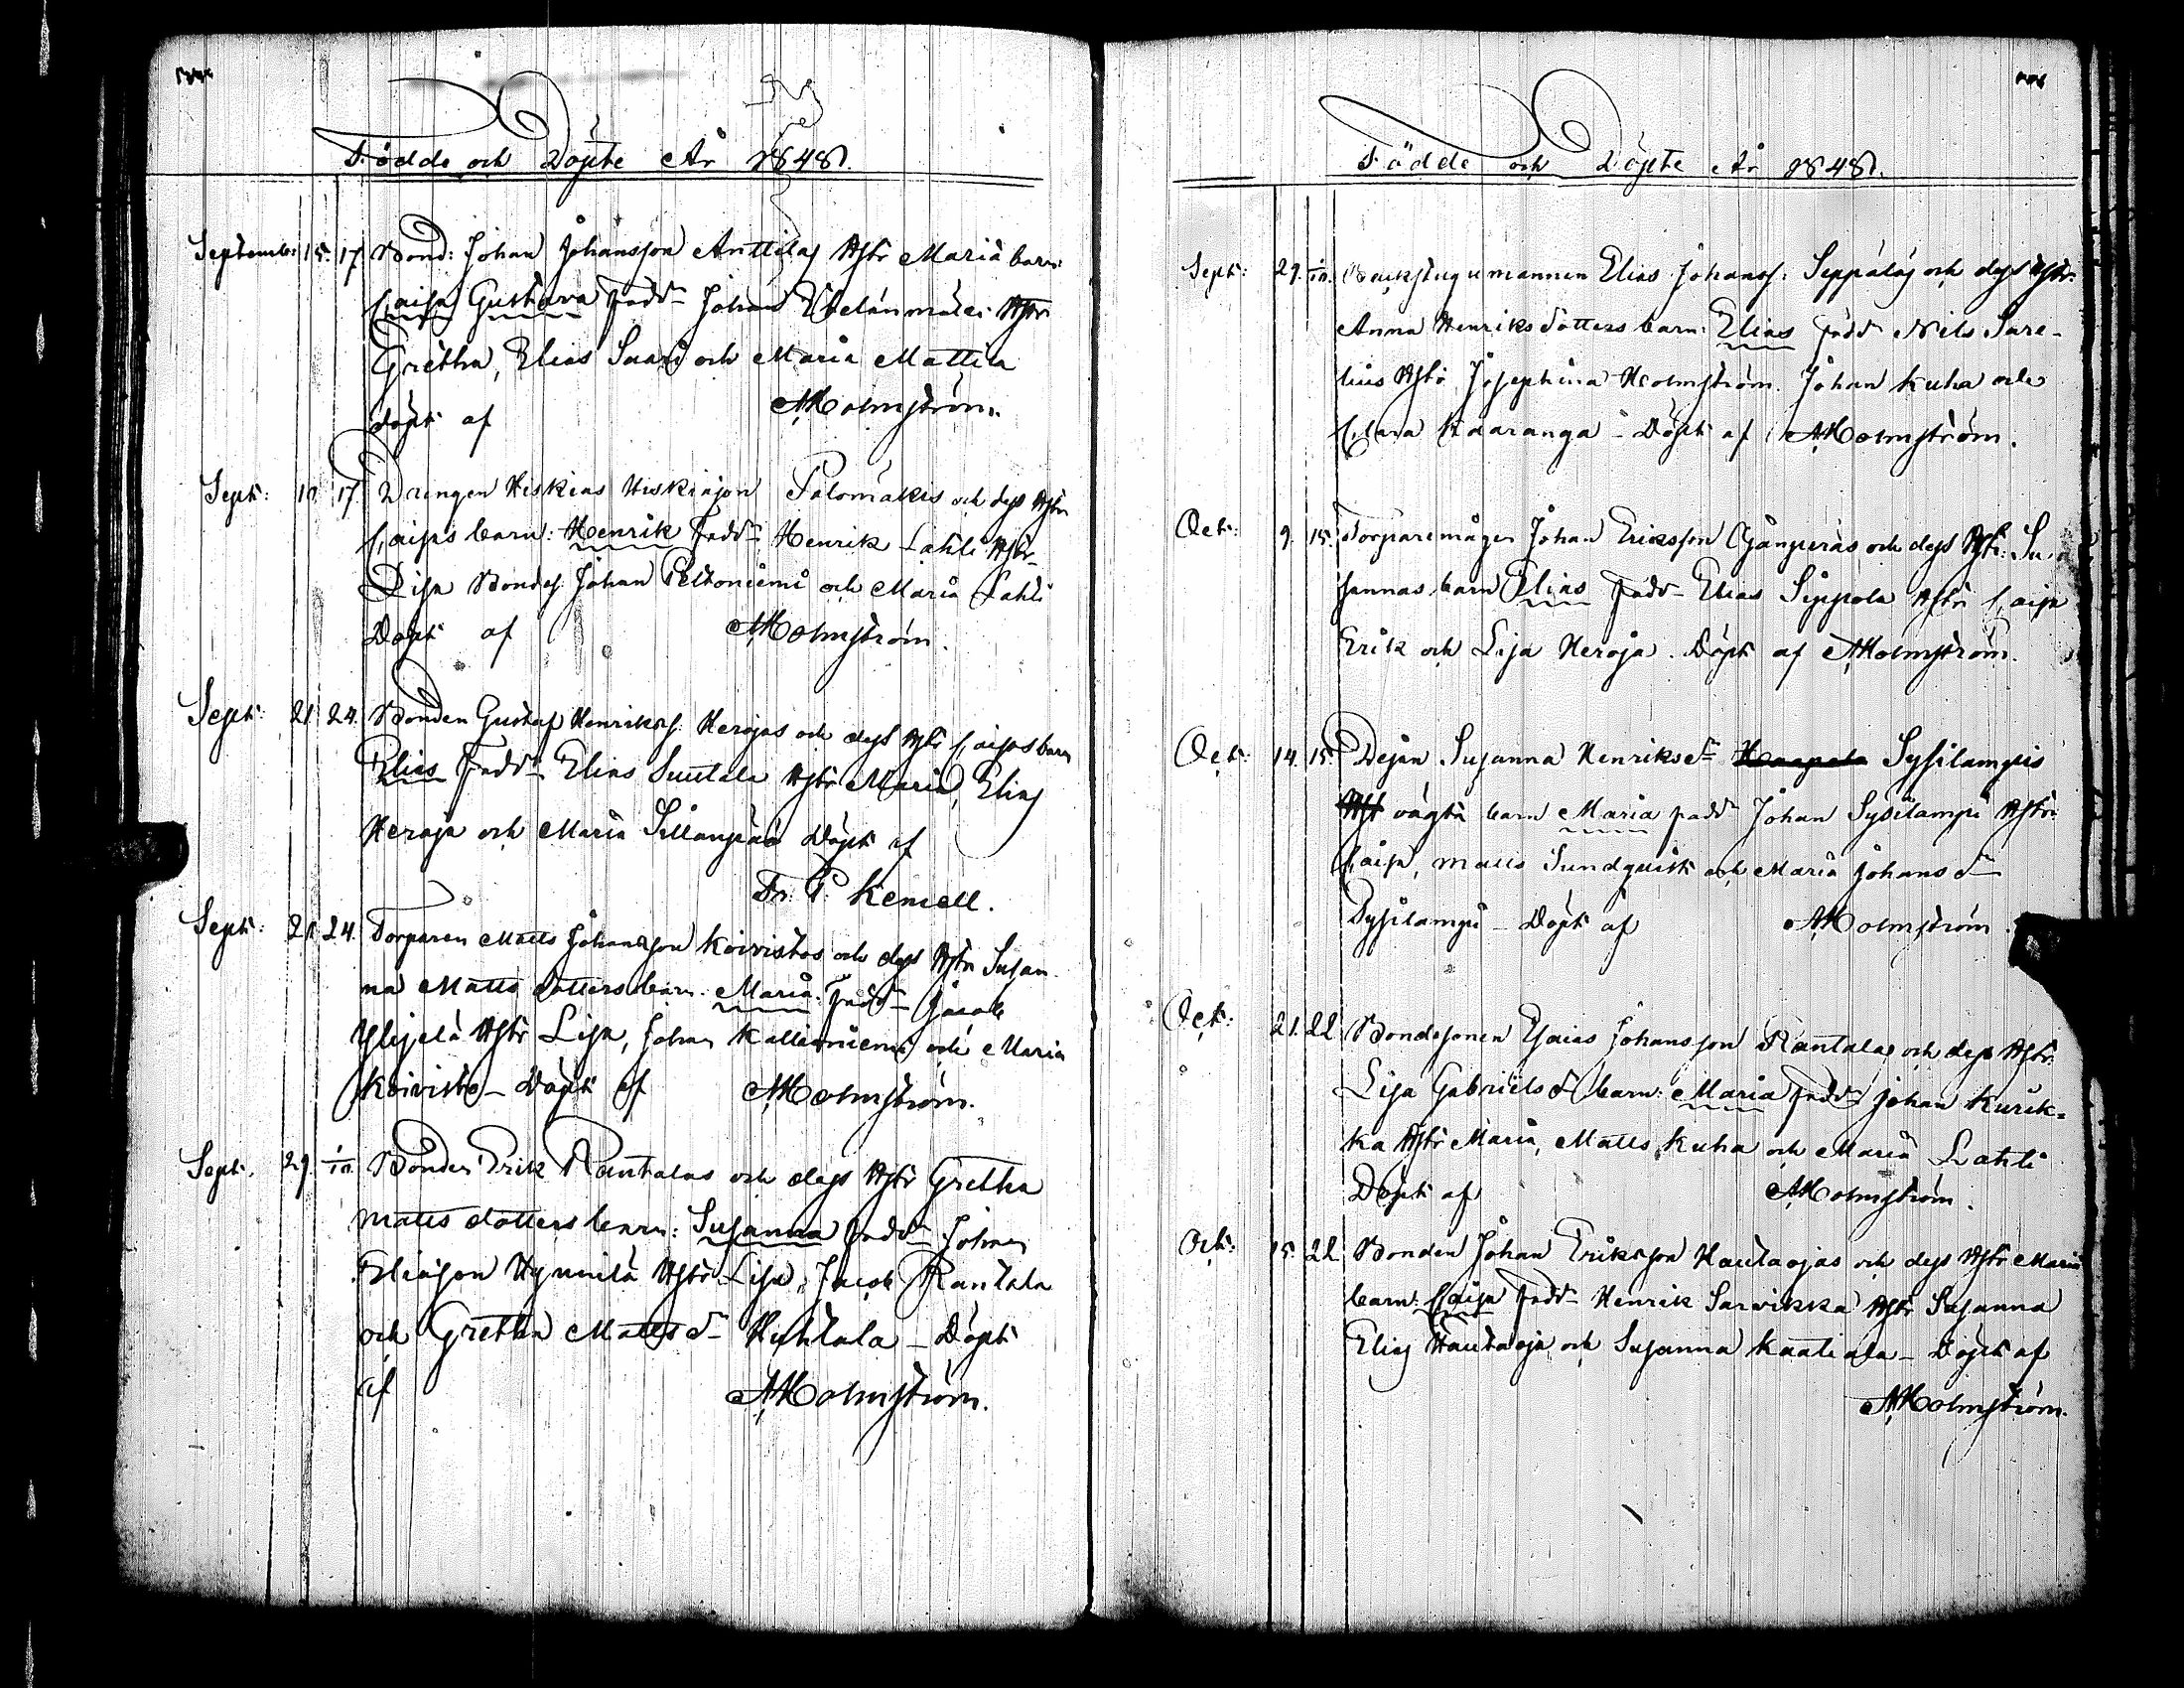 Födde och Döpte År 1848.
Septemb: 15. 17. Bond: Johan Johansson Anttilas Hstr Maria barn:
Caisa Gustava Fadd Johan Hstr
Gretha, Elias Saari och Maria Mattila
Döpt af AHolmström.
Sept: 10 17. Drengen Hiskias Hiskiason Salomäkis och dess Hstr
Caisas barn: Henrik Fadd Henrik Lahti Hstr
Lisa Bondes. Johan Peltoniemi och Maria Lahti
Döpt af AHolmström.
Sept: 21 24. Bonden Gustaf Henrikss. Herojas och dess Hstr Caisas barn
Elias Fadd Elias Luntala Hstr Maria, Elias
Heroja och Maria Sillanpää Döpt af
Fr. P. Kemell.
Sept: 21 24. Torparen Matts Johansson Koivistos och dess Hstr Susan
na Matts dotters barn. Maria. Fadd Jacob
Ylijelä Hstr Lisa, Johan Kallioniemi och Maria
Koivisto - Döpt af AHolmström.
Sept. 29. 1/10. Bonden Erik Rantalas och dess Hstr Gretha
Matts dotters barn: Susanna Fadd Johan
Eliasson Hynnilä Hstr Lisa, Jacob Rantala
och Gretha Mattsd Huhtala - Döpt
af AHolmström.
Födde och Döpte År 1848.
Sept: 29. 1/10. Backstugumannen Elias Johanss: Seppäläs och dess Hstr.
Anna Henriksdotters barn: Elias Fadd Nils Sare-
lius Hstr Josephina Holmström. Johan Kuha och
Clara Kaaranga - Döpt af AHolmström.
Oct: 9. 15. Torparemågen Johan Eriksson Gånperäs och dess Hstr: Su-
sannas barn Elias Fadd Elias Seppola Hstr Caisa
Erik och Lisa Heroja. Döpt af AHolmström.
Oct: 14. 15. Dejan Susanna Henriksd Haapala Sysilampis
Hst oägta barn Maria fadd Johan Sysilampi Hstr
Caisa, Matts Sundqvist och Maria Johansd
Sysilampi - Döpt af AHolmström.
Oct: 21. 22 Bondesonen Esaias Johansson Rantalas och dess Hstr.
Lisa Gabrielsd barn: Maria Fadd Johan Kurik-
ka Hstr Maria, Matts Kuha och Maria Lahti
Döpt af AHolmström.
Oct: 15. 22 Bonden Johan Eriksson Hautaojas och dess Hstr Maria
barn: Caisa Fadd Henrik Sarvikka Hstr Susanna
Elias Hautaoja och Susanna Kaatiala - Döpt af
AHolmström.